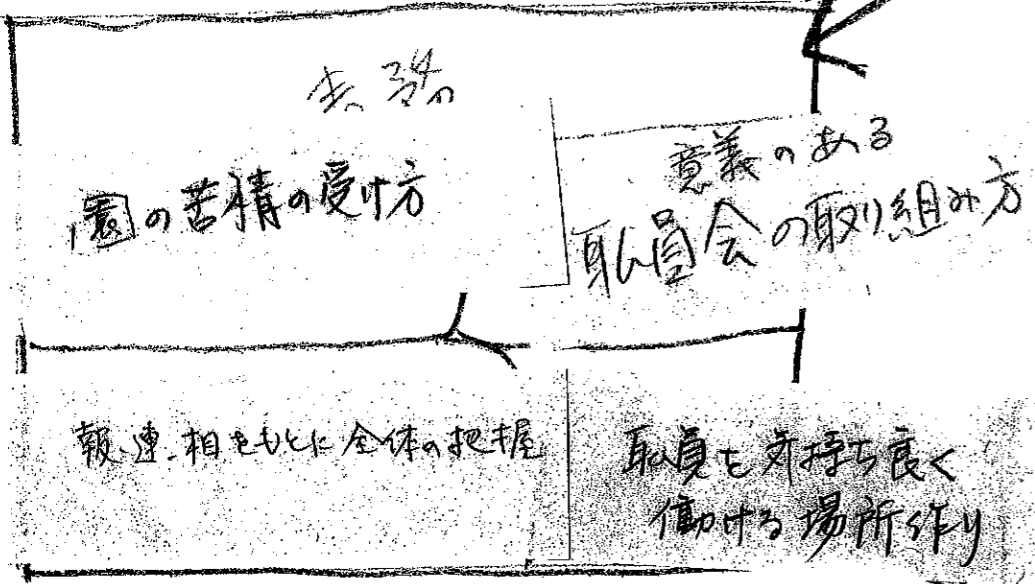 園の苦情の受け方
意義のある
職員会の取り組み方
報.連.相をもとに全体の把握
職員も気持ち良く
働ける場所作り